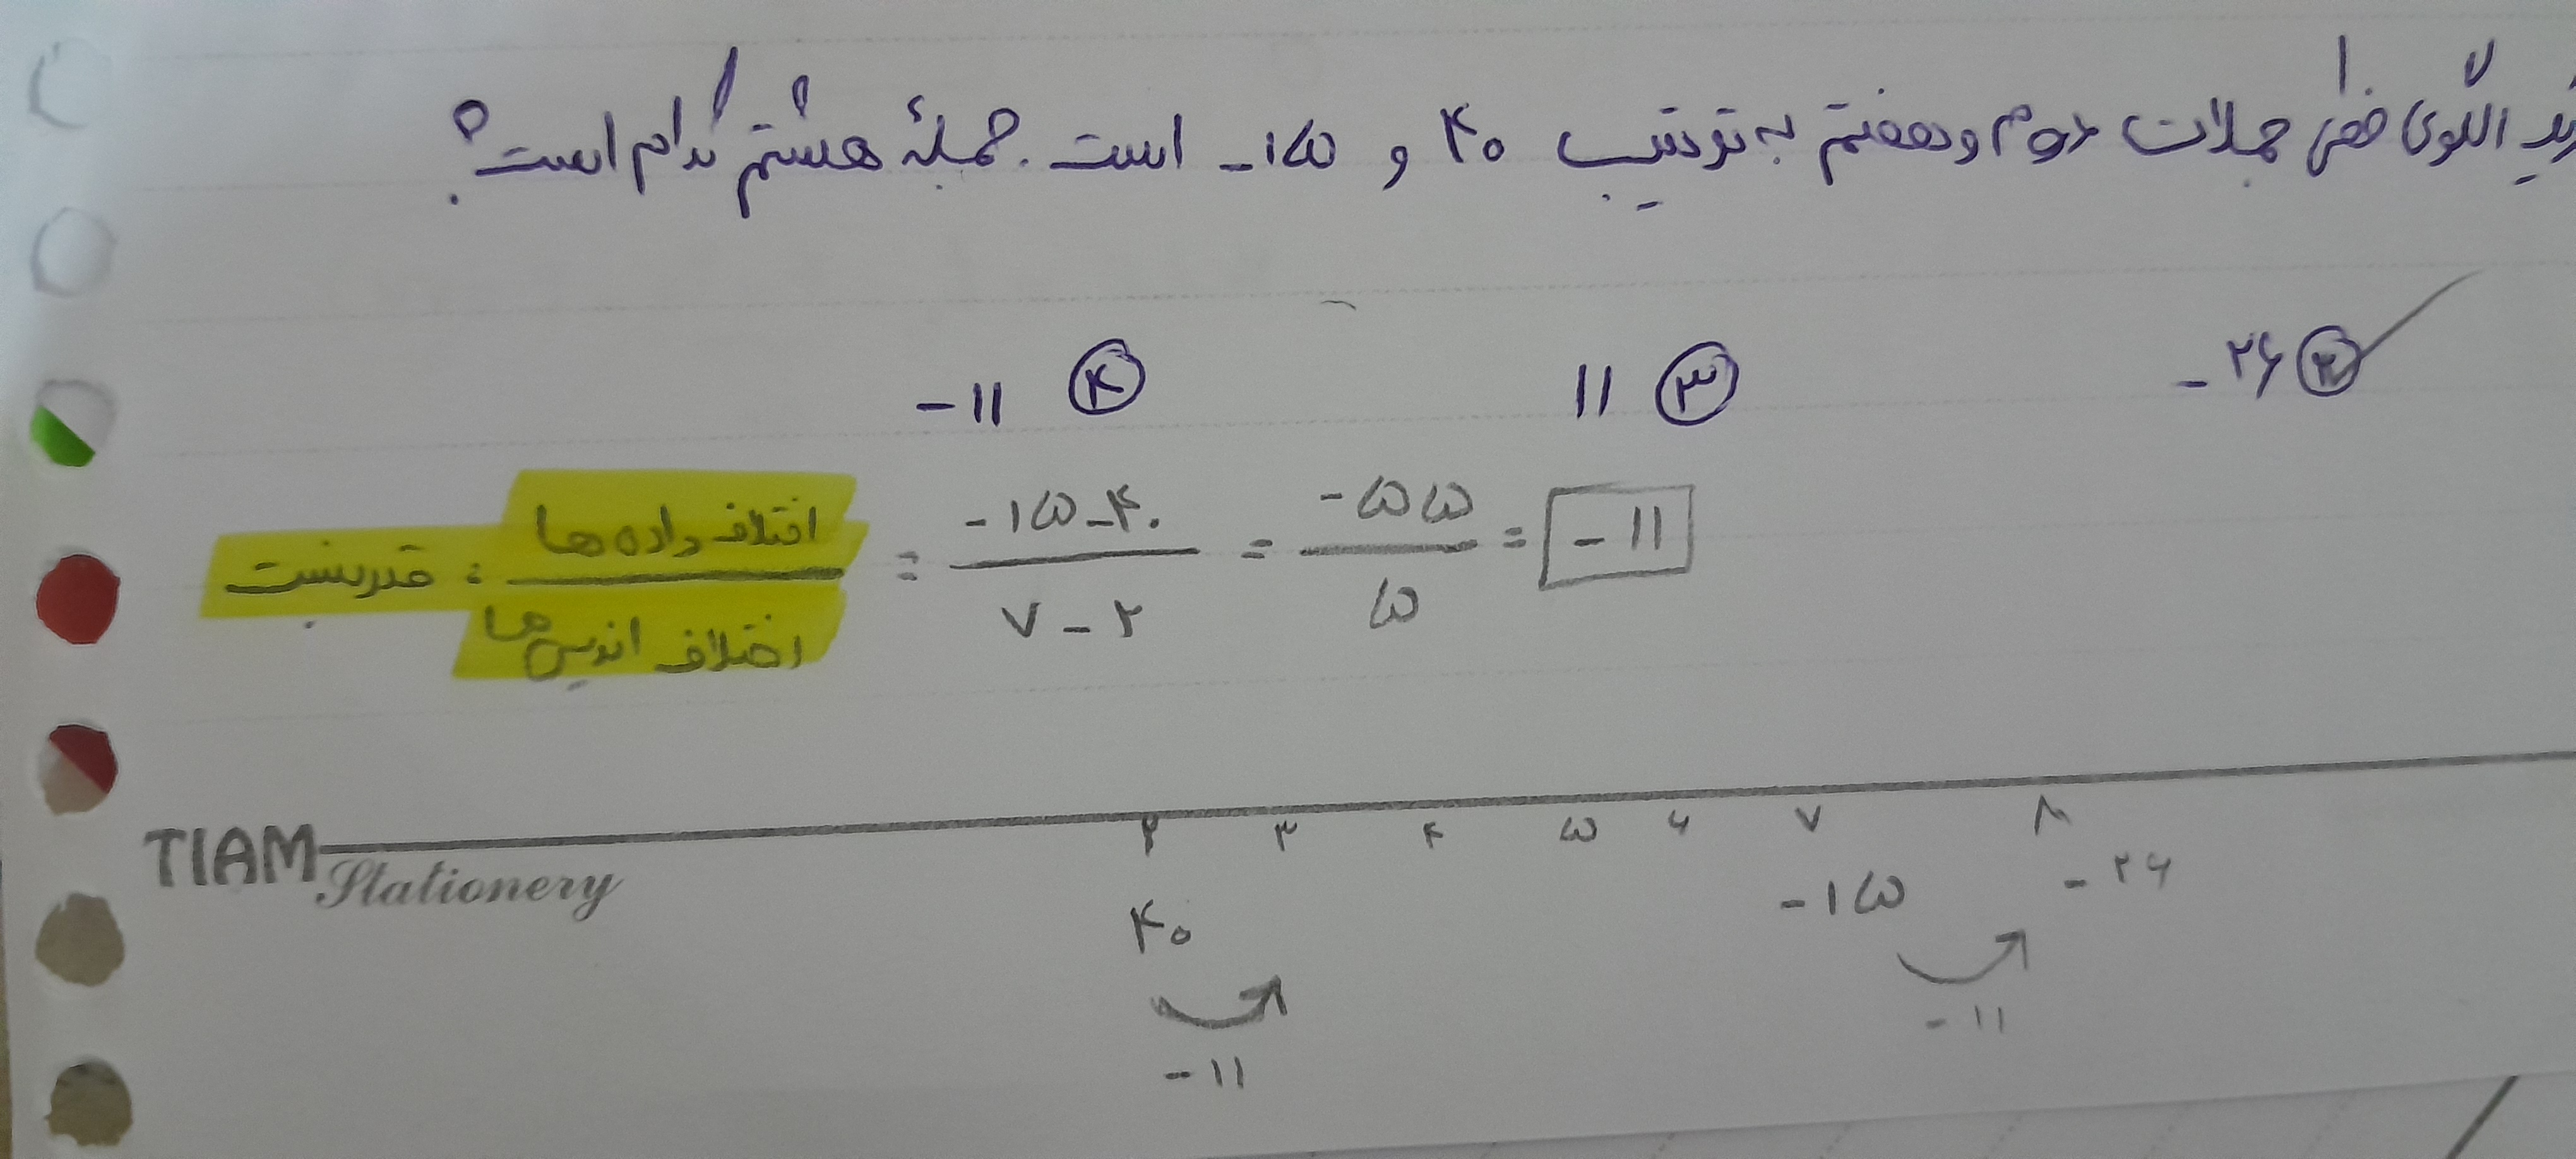 الگوی خطی جملات دوم و هفتم به ترتیب ۴۰ و ۱۵- است. جملهٔ هشتم کدام است؟
۲) ۲۶-  ۳) ۱۱  ۴) ۱۱-
قدرنسبت = اختلاف داده ها / اختلاف اندیس ها = -۱۵-۴۰ / ۷-۲ = -۵۵ / ۵ = -۱۱
TIAM Stationery
۲ ۳ ۴ ۵ ۶ ۷ ۸
۴۰ -۱۵ -۲۶
-۱۱ -۱۱